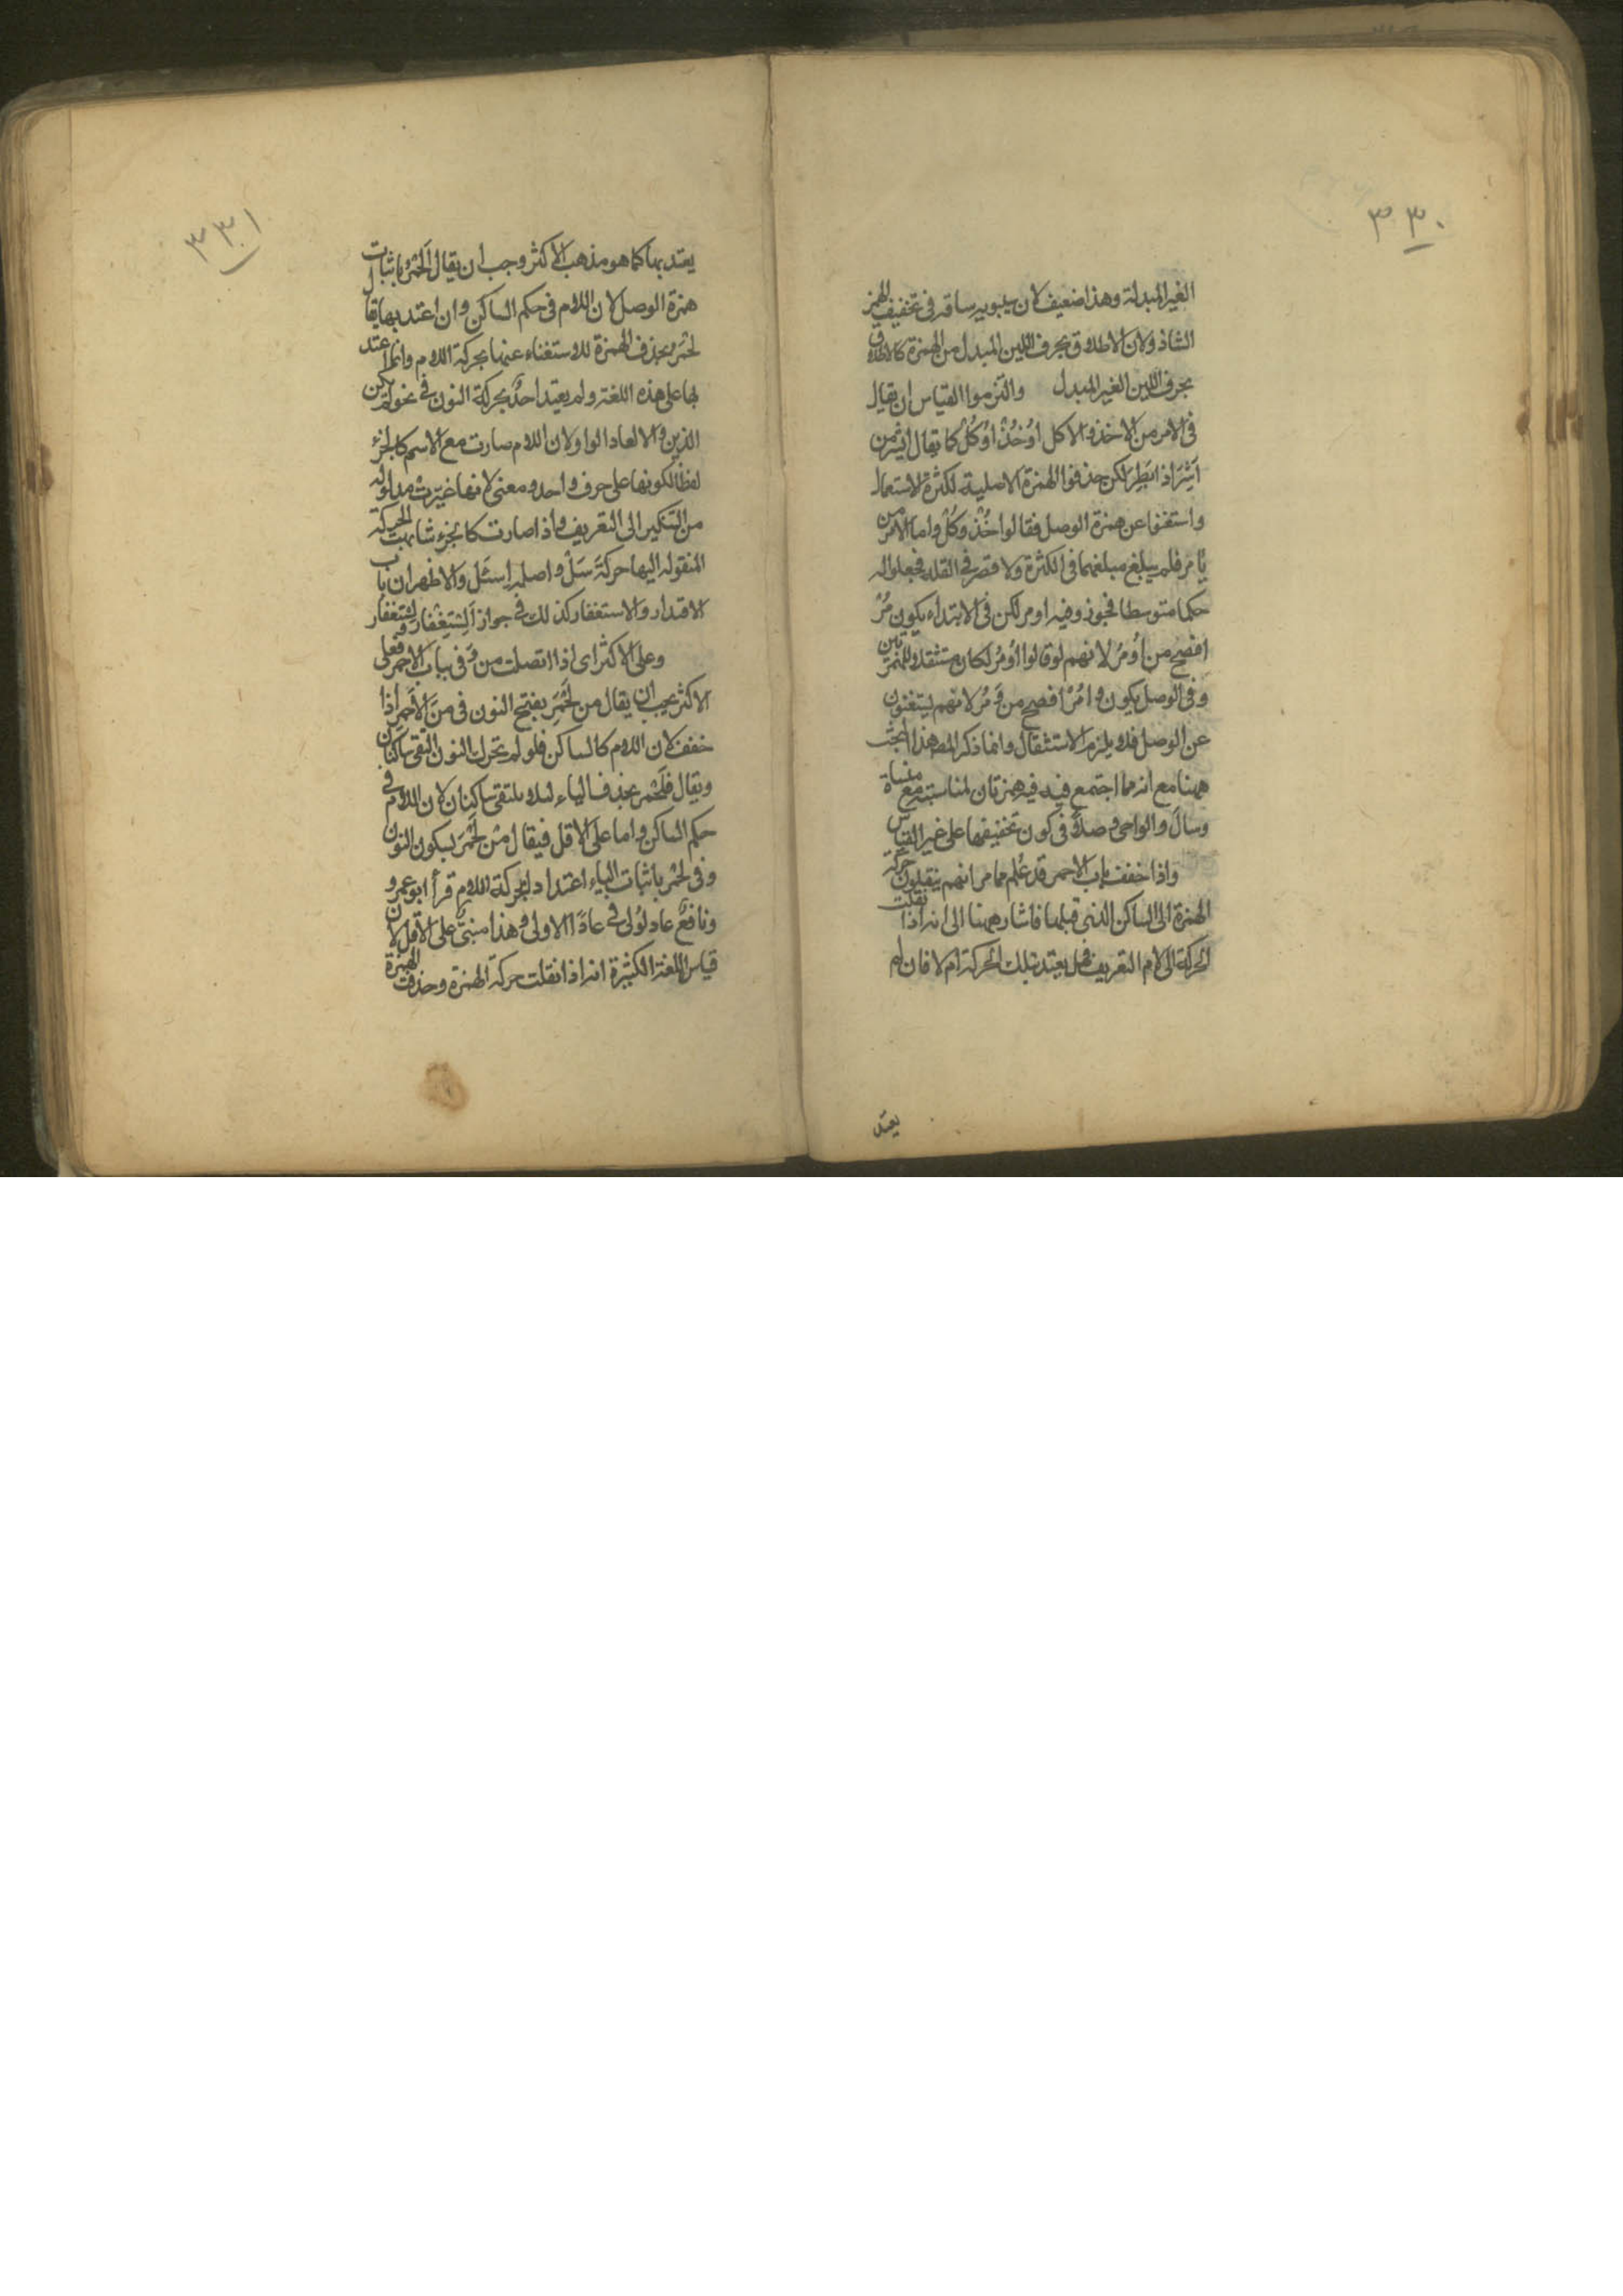 ٣٣٠
الغير المبدلة وهذا ضعيف لان سيبويه ساقه في تخفيف الهمز
الشاذ ولان الاطلاق بحرف اللين المبدل من الهمزة كالاطلاق
بحرف اللين الغير المبدل والتزموا القياس ان يقال
في الامر من الاخذ والاكل اوُخُذْ اوُكُلْ كما يقال ايشر من
اَشِرَ اذا بَطِرَ لكن حذفوا الهمزة الاصلية لكثرة الاستعمال
واستغنوا عن همزة الوصل فقالوا خُذْ وكُلْ واما الامر من
يأمر فلم يبلغ مبلغهما في الكثرة ولا قصر في القلة فجعلوا له
حكما متوسطا فجوز وفيه اومر لكن في الابتداء يكون مُرْ
افصح من اُومُر لانهم لو قالوا اُومُر لكان مستثقلا للهمزتين
وفي الوصل يكون وامُرْ افصح من وَمُر لانهم يستغنون
عن الوصل فلا يلزم الاستثقال وانما ذكر المص هذا البحث
ههنا مع انه مما اجتمع فيه همزتان لمناسبته مع منساة
وسال والواجي وصلاً في كون تخفيفها على غير القياس
واذا خفف باب الاحمر قد عُلم مما مر انهم ينقلون حركة
الهمزة الى الساكن الذي قبلها فاشار ههنا الى انه اذا نقلت
الحركة الى لام التعريف فهل يعتد بتلك الحركة ام لا فان لم
يعتد
٣٣١
يعتد بها كما هو مذهب الاكثر وجب ان يقال اَلَحْمَرُ باثبات
همزة الوصل لان اللام في حكم الساكن وان اعتد بها يقال
لَحْمَر بحذف الهمزة للاستغناء عنها بحركة اللام وانما اعتد
بها على هذه اللغة ولم يعتد احدٌ بحركة النون في نحو لم يكن
الذين والا لعاد الواو لان اللام صارت مع الاسم كالجزء
لفظاً لكونها على حرف واحد ومعنى لانها غيّرت مدلوله
من التنكير الى التعريف واذا صارت كالجزء شابهت الحركة
المنقوله اليها حركةَ سَلْ واصله اِسئَل والاظهر ان باب
الاقتدار والاستغفار كذلك في جواز اَلِسْتِغْفار ولِسْتغفار
وعلى الاكثر اي اذا اتصلت من وَفي بباب الاحمر فعلى
الاكثر يجب ان يقال من لَحْمَرِ بفتح النون في منَ الاَحمر اذا
خفف لان اللام كالساكن فلو لم تحرك النون التقى ساكنان
ويقال فِلَحْمَر بحذف الياء لئلا يلتقي ساكنان لان اللام في
حكم الساكن واما على الاقل فيقال مْن لَحْمَرَ بسكون النون
وفي لحمر باثبات الياء اعتدادا بحركة اللام قرأ ابو عمرو
ونافعٌ عاد لُولى في عادًا الاولى وهذا مبنيّ على الاقل لان
قياس اللغة الكثيرة انه اذا نقلت حركة الهمزة وحذفت الهمزة